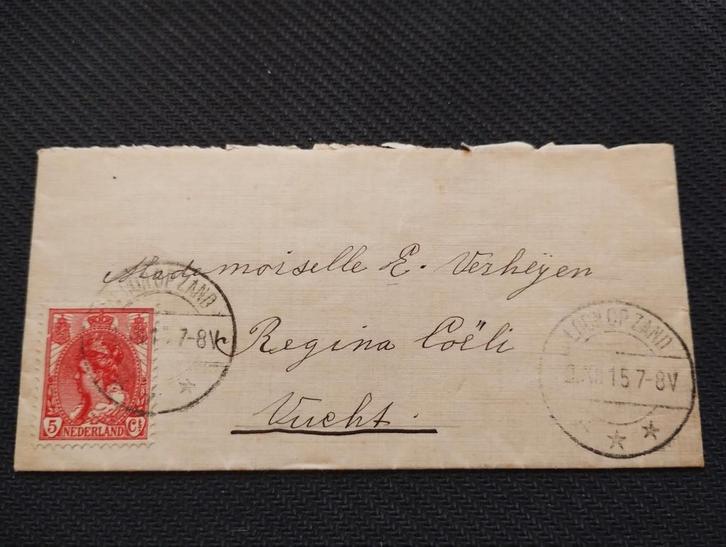 Mademoiselle E. Verheÿen
Regina Coëli
Vucht.
LOON OP ZAND
15 7-8V
LOON OP ZAND
XII 15 7-8V
5 Ct
NEDERLAND